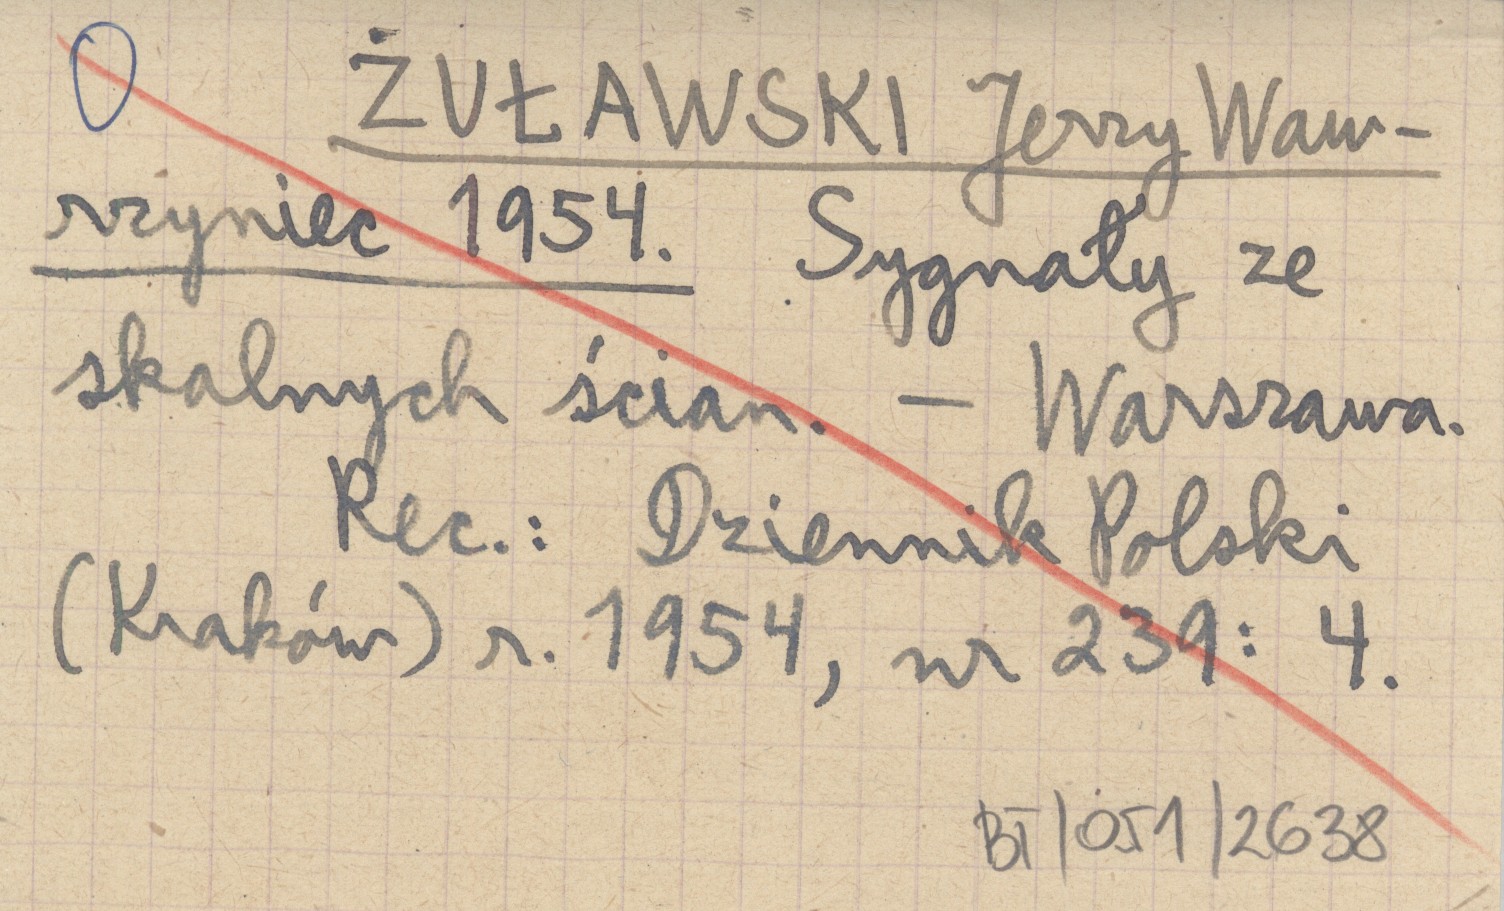 ŻUŁAWSKI Jerzy Waw-
rzyniec 1954. Sygnały ze
skalnych ścian. — Warszawa.
Rec.: Dziennik Polski
(Kraków) r. 1954, nr 239: 4.
BT/051/2638